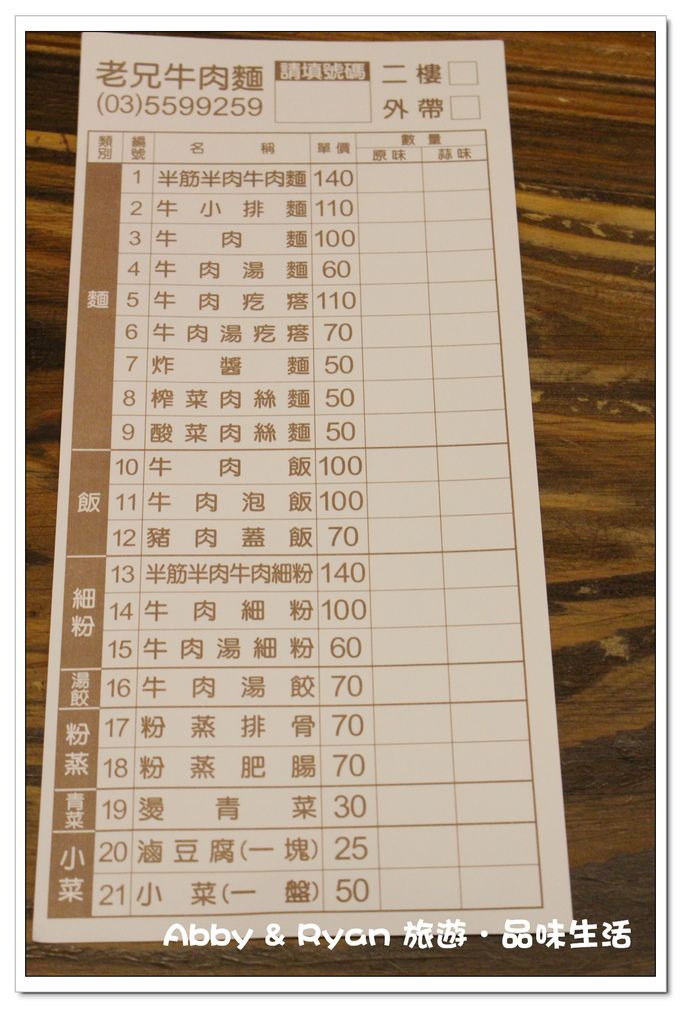 老兄牛肉麵 請填號碼 二樓
(03)5599259 外帶
類別 編號 名稱 單價 數量
原味 蒜味
麵
1 半筋半肉牛肉麵 140
2 牛小排麵 110
3 牛肉麵 100
4 牛肉湯麵 60
5 牛肉疙瘩 110
6 牛肉湯疙瘩 70
7 炸醬麵 50
8 榨菜肉絲麵 50
9 酸菜肉絲麵 50
飯
10 牛肉飯 100
11 牛肉泡飯 100
12 豬肉蓋飯 70
細粉
13 半筋半肉牛肉細粉 140
14 牛肉細粉 100
15 牛肉湯細粉 60
湯餃
16 牛肉湯餃 70
粉蒸
17 粉蒸排骨 70
18 粉蒸肥腸 70
青菜
19 燙青菜 30
小菜
20 滷豆腐(一塊) 25
21 小菜(一盤) 50
Abby & Ryan 旅遊・品味生活